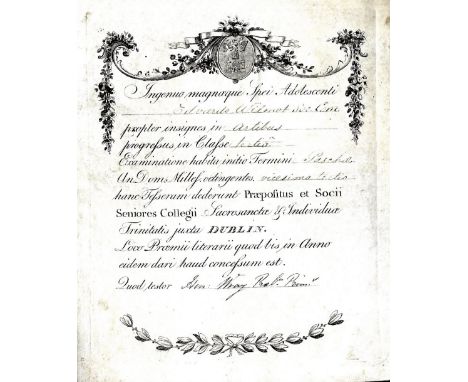 Ingenuo, magnæque Spei Adolescenti
Edvardo Wilmot
propter insignes in Artibus
progressus in Classe
Examinatione habita initio Termini Paschæ
An Dom: Milless, octingentes, vicesimo
hanc Tesseram dederunt Præpositus et Socii
Seniores Collegii Sacrosanctæ & Individuæ
Trinitatis juxta DUBLIN.
Loco Præmii literarii quod bis, in Anno
eidem dari haud concessum est.
Quod, testor Hen: Wray